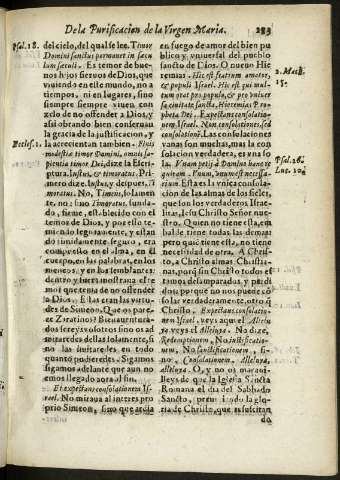 De la Purificacion de la Virgen Maria.
Psal. 18.
del cielo, del qual se lee. Timor
Domini sanctus permanet in sæcu
lum sæculi. Es temor de bue-
nos hijos siervos de Dios, que
viuiendo en este mundo, no a
tiempos, ni en lugares, sino
siempre siempre viuen con
zelo de no ofender a Dios, y
assi obrando bien conseruan
la gracia de justificacion, y
Eccles. 1.
la acrecientan tambien.
timor Domini, omnis sa-
pientia timor Dei, dize la Escri-
ptura. Iustus, & timoratus. Pri-
mero dize. Iustus, y despues. Ti
moratus. No, Timens, solamen
te, no: sino Timoratus, funda-
do, firme, establecido con el
temor de Dios, y por esso te-
miendo seguramente, y estan
do timidamente seguro, era
compuesto en el alma, en el
cuerpo, en las palabras, en los
meneos, y en los semblantes,
dentro y fuera mostraua este te
mor que tenia de no ofender
a Dios. Estas eran las virtu-
des de Simeon. Que os pare-
ce Zitatinos? Bienauentura-
dos sereys vosotros sino os ad
mirardes dellas solamente, si
no las imitardes en todo
quanto pudieredes. Sigamos
sigamos adelante que aun no
emos llegado aora al fin.
Et expectans consolationem Is-
rael. No miraua al interes pro
prio Simeon, sino que ardia
en fuego de amor del bien pu
blico y vniuersal del pueblo
sancto de Dios. O nueuo Hie
2. Mach.
remias. Hic est fratrum amator,
15.
& populi Israel. Hic est qui mul-
tum orat pro populo, & pro vniuer
sa ciuitate sancta, Hieremias Pro
pheta Dei. Expectans consolatio-
nem Israel. Non consolationes, sed
consolationẽ. Las consolaciones
vanas son muchas, mas la con
solacion verdadera, es vna so
Psal. 26.
la. Vnam petij à Domino hanc re
Luc. 10.
quiram. Porrò, vnum est necessa-
rium. Esta es la vnica consola-
cion de las almas de los fieles,
que son los verdaderos Israe-
litas, Iesu Christo Señor nue-
stro. Quien no tiene esta, en
balde tiene todas las demas
pero quiẽ tiene esta, no tiene
necessidad de otra. A Chris-
to, a Christo almas Christia-
nas, porq̃ sin Christo todos es
timos desamparados, y perdi
dos; porque nó nos puede con
solar verdaderamente, otro q̃
Christo. Expectans consolatio-
nem Israel, veys aqui el Allelu
ia veys el Alleluya. No dize,
Redemptionem, No iustificatio-
nem, No sanctificationem, si-
no, Consolationem, Alleluya,
alleluya. O, y no os maraui-
lleys de que la Iglesia Sancta
Romana el dia del Sabbado
Sancto, preuiniendo la glo-
ria de Christo, que es suscitan
do